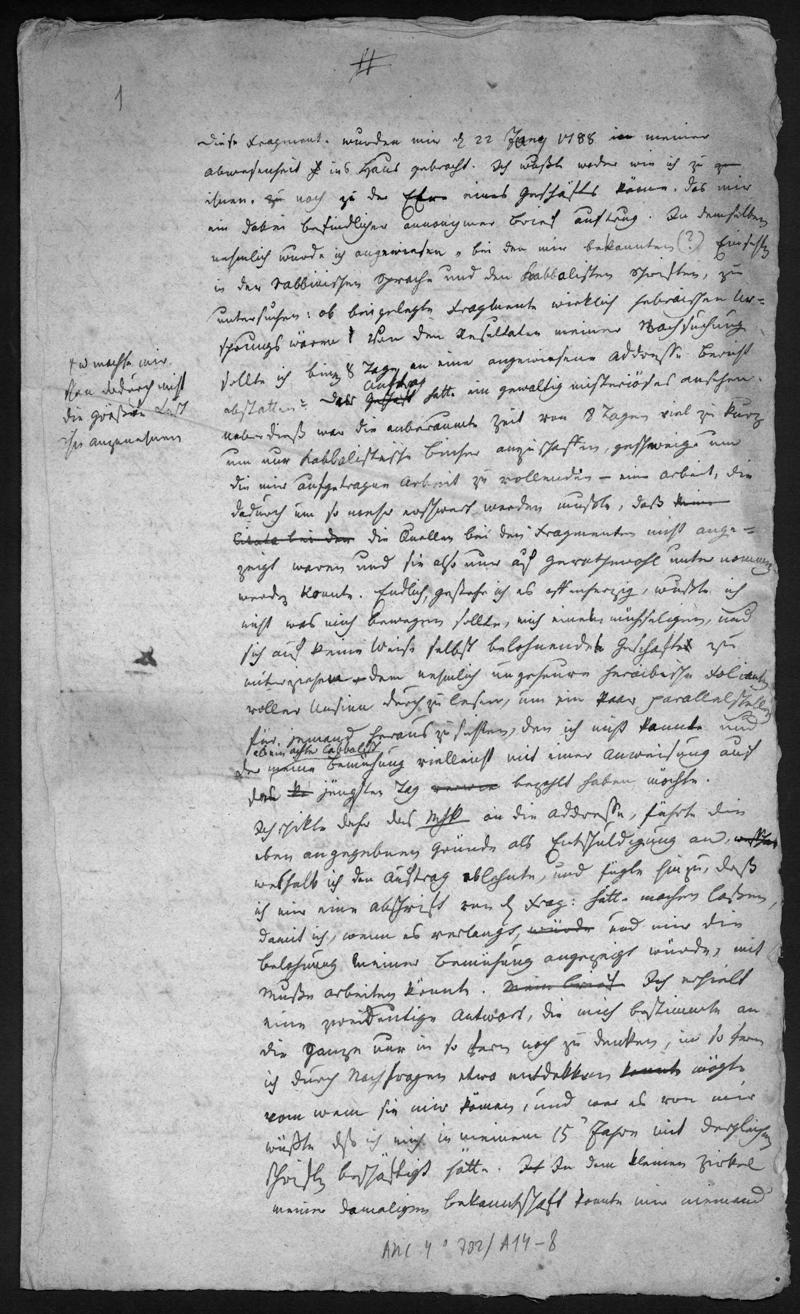 1
#
Diese Fragment. wurden mir d 22 Jang 1788 in meiner
abwesenheit ins Haus gebracht. Ich wußte weder wie ich zu
ihnen, noch zu der Ehre eines Geschäfts käme, das mir
ein dabei befindlicher annonymer Brief auftrug. In demselben
nehmlich wurde ich angewiesen, bei den mir bekannten (?) Einsichten
in der Rabbinischen Sprache und den Kabbalistischen Schriften, zu
untersuchen: ob beigelegte Fragmente wirklich hebraischen Ur-
sprungs wären? Von den Resultaten meiner Nachsuchung
sollte ich binnen 8 Tagen an eine angewiesene Addresse Bericht
abstatten. Der Auftrag hatte ein gewaltig misteriöses ansehen.
und machte mir
schon dadurch nicht
die gröste Lust
ihn anzunehmen
ueberdieß war die anberaumte Zeit von 8 Tagen viel zu kurz
um nur Kabbalistische Bücher anzuschaffen, geschweige um
die mir aufgetragene Arbeit zu vollenden – eine arbeit, die
dadurch um so mehr erschwert werden mußte, daß keine
Citata bei den die Quellen bei den Fragmenten nicht ange-
zeigt waren und sie also nur auf gerathewohl unternommen
werden konnte. Endlich, gestehe ich es offenherzig, wußte ich
nicht was mich bewegen sollte, mich einem mühseligen, und
sich auf keine Weise selbst belohnenden Geschäfte zu
unterziehen, dem nehmlich ungeheure hebraische Folianten
voller Unsinn durchzulesen, um ein paar parallelstellen
für jemand herauszusuchen, den ich nicht kannte und
als ein ächter Cabbalist
der meine Bemühung vielleicht mit einer Anweisung auf
den jüngsten Tag bezahlt haben möchte.
Ich schikte daher das Mspt an die Addresse, führte die
eben angegebnen Gründe als Entschuldigung an,
weshalb ich den Auftrag ablehnte, und fügte hinzu, daß
ich mir eine abschrift von d Frag: hätte machen laßen,
damit ich, wenn es verlangt würde und mir die
Belohnung meiner Bemühung angezeigt würde, mit
Muße arbeiten könnte. Mein Brief Ich erhielt
eine zweideutige Antwort, die mich bestimmte an
die ganze nur in so fern noch zu denken, in so fern
ich durch Nachfragen etwa entdekken konnte mögte
von wem sie mir kämen, und wer es von mir
wüßte daß ich mich in meinem 15 Jahre mit dergleichen
Schriften beschäftigt hätte. In dem kleinen Zirkel
meiner damaligen bekanntschaft konnte nur niemand
ANC 4° 702/A14-8